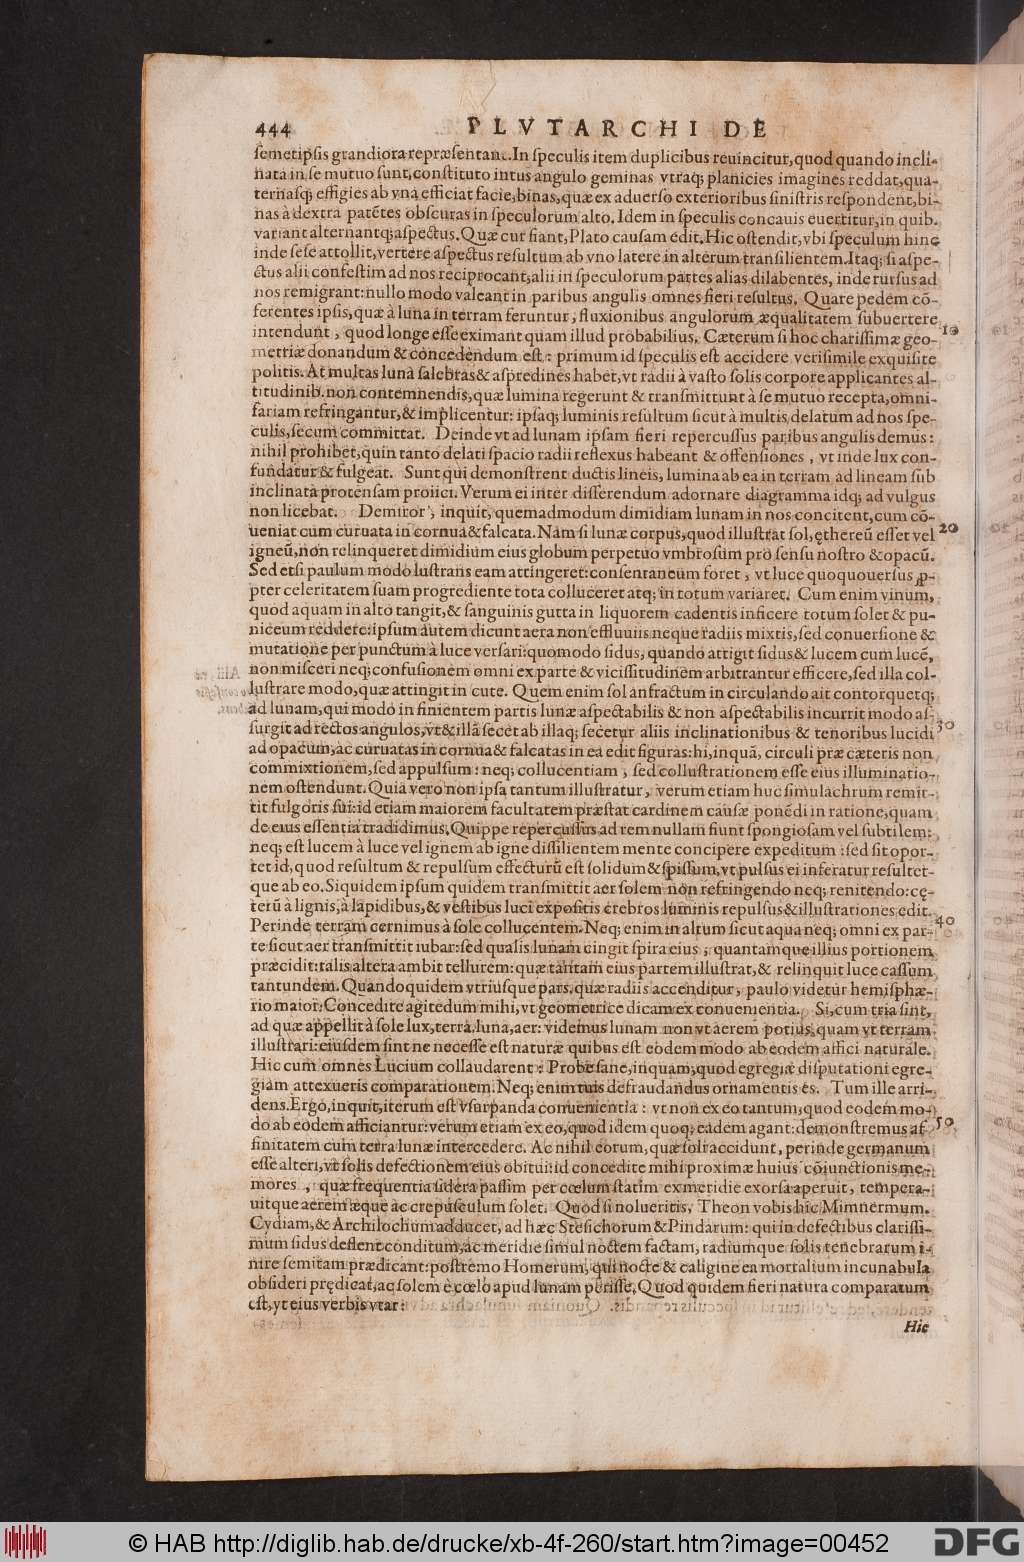 444 PLVTARCHI DE
semetipsis grandiora repræsentant. In speculis item duplicibus reuincitur, quod quando incli-
nata in se mutuo sunt, constituto intus angulo geminas vtraq; planicies imagines reddat, qua-
ternasq; effigies ab vna efficiat facie, binas, quæ ex aduerso exterioribus sinistris respondent, bi-
nas à dextra patẽtes obscuras in speculorum alto. Idem in speculis concauis euertitur, in quib.
variant alternantq; aspectus. Quæ cur fiant, Plato causam edit. Hic ostendit, vbi speculum hinc
inde sese attollit, vertere aspectus resultum ab vno latere in alterum transilientem. Itaq; si aspe-
ctus alii confestim ad nos reciprocant, alii in speculorum partes alias dilabentes, inde rursus ad
nos remigrant: nullo modo valeant in paribus angulis omnes fieri resultus. Quare pedem cõ-
ferentes ipsis, quæ à luna in terram feruntur, fluxionibus angulorum æqualitatem subuertere
intendunt, quod longe esse eximant quam illud probabilius. Cæterum si hoc charissimæ geo- 10
metriæ donandum & concedendum est: primum id speculis est accidere verisimile exquisite
politis. At multas luna salebras & aspredines habet, vt radii à vasto solis corpore applicantes al-
titudinib. non contemnendis, quæ lumina regerunt & transmittunt à se mutuo recepta, omni-
fariam refringantur, & implicentur: ipsaq; luminis resultum sicut à multis delatum ad nos spe-
culis, secum committat. Deinde vt ad lunam ipsam fieri repercussus paribus angulis demus:
nihil prohibet, quin tanto delati spacio radii reflexus habeant & offensiones, vt inde lux con-
fundatur & fulgeat. Sunt qui demonstrent ductis lineis, lumina ab ea in terram ad lineam sub
inclinatà protensam proiici. Verum ei inter disserendum adornare diagramma idq; ad vulgus
non licebat. Demiror, inquit, quemadmodum dimidiam lunam in nos concitent, cum cõ-
ueniat cum curuata in cornua & falcata. Nam si lunæ corpus, quod illustrat sol, ęthereũ esset vel 20
igneũ, non relinqueret dimidium eius globum perpetuo vmbrosum pro sensu nostro & opacũ.
Sed etsi paulum modo lustrans eam attingeret: consentaneum foret, vt luce quoquouersus ꝓ-
pter celeritatem suam progrediente tota colluceret atq; in totum variaret. Cum enim vinum,
quod aquam in alto tangit, & sanguinis gutta in liquorem cadentis inficere totum solet & pu-
niceum reddere: ipsum autem dicunt aera non effluuiis neque radiis mixtis, sed conuersione &
mutatione per punctum à luce versari: quomodo sidus, quando attigit sidus & lucem cum lucẽ,
non misceri neq; confusionem omni ex parte & vicissitudinem arbitrantur efficere, sed illa col-
lustrare modo, quæ attingit in cute. Quem enim sol anfractum in circulando ait contorquetq;
ad lunam, qui modo in finientem partis lunæ aspectabilis & non aspectabilis incurrit modo as-
surgit ad rectos angulos, vt & illã secet ab illaq; secetur aliis inclinationibus & tenoribus lucidi 30
ad opacum, ac curuatas in cornua & falcatas in ea edit figuras: hi, inquã, circuli præ cæteris non
commixtionem, sed appulsum: neq; collucentiam, sed collustrationem esse eius illuminatio-
nem ostendunt. Quia vero non ipsa tantum illustratur, verum etiam huc simulachrum remit-
tit fulgoris sui: id etiam maiorem facultatem præstat cardinem causæ ponẽdi in ratione, quam
de eius essentia tradidimus. Quippe repercussus ad rem nullam fiunt spongiosam vel subtilem:
neq; est lucem à luce vel ignem ab igne dissilientem mente concipere expeditum: sed sit opor-
tet id, quod resultum & repulsum effecturũ est solidum & spissum, vt pulsus ei inferatur resultet-
que ab eo. Siquidem ipsum quidem transmittit aer solem non refringendo neq; renitendo: cę-
terũ à lignis, à lapidibus, & vestibus luci expositis crebros luminis repulsus & illustrationes edit.
Perinde terram cernimus à sole collucentem. Neq; enim in altum sicut aqua neq; omni ex par- 40
te sicut aer transmittit iubar: sed qualis lunam cingit spira eius, quantamque illius portionem
præcidit: talis altera ambit tellurem: quæ tantam eius partem illustrat, & relinquit luce cassum
tantundem. Quandoquidem vtriusque pars, quæ radiis accenditur, paulo videtur hemisphæ-
rio maior. Concedite agitedum mihi, vt geometrice dicam ex conuenientia. Si, cum tria sint,
ad quæ appellit à sole lux, terra, luna, aer: videmus lunam non vt aerem potius, quam vt terram
illustrari: eiusdem sint ne necesse est naturæ quibus est eodem modo ab eodem affici naturale.
Hic cum omnes Lucium collaudarent: Probe sane, inquam, quod egregiæ disputationi egre-
giam attexueris comparationem. Neq; enim tuis defraudandus ornamentis es. Tum ille arri-
dens. Ergo, inquit, iterum est vsurpanda conuenientia: vt non ex eo tantum, quod eodem mo-
do ab eodem afficiantur: verum etiam ex eo, quod idem quoq; eadem agant: demonstremus af 50
finitatem cum terra lunæ intercedere. Ac nihil eorum, quæ soli accidunt, perinde germanum
esse alteri, vt solis defectionem eius obitui: id concedite mihi proximæ huius cõiunctionis me-
mores, quæ frequentia sidera passim per cœlum statim ex meridie exorsa aperuit, tempera-
uitque aerem æque ac crepusculum solet. Quod si nolueritis, Theon vobis hic Mimnermum.
Cydiam, & Archilochum adducet, ad hæc Stesichorum & Pindarum: qui in defectibus clarissi-
mum sidus deflent conditum, ac meridie simul noctem factam, radiumque solis tenebrarum i-
nire semitam prædicant: postremo Homerum, qui nocte & caligine ea mortalium incunabula
obsideri prędicat, aq solem è cœlo apud lunam periisse. Quod quidem fieri natura comparatum
est, vt eius verbis vtar:
Hic
© HAB http://diglib.hab.de/drucke/xb-4f-260/start.htm?image=00452
DFG